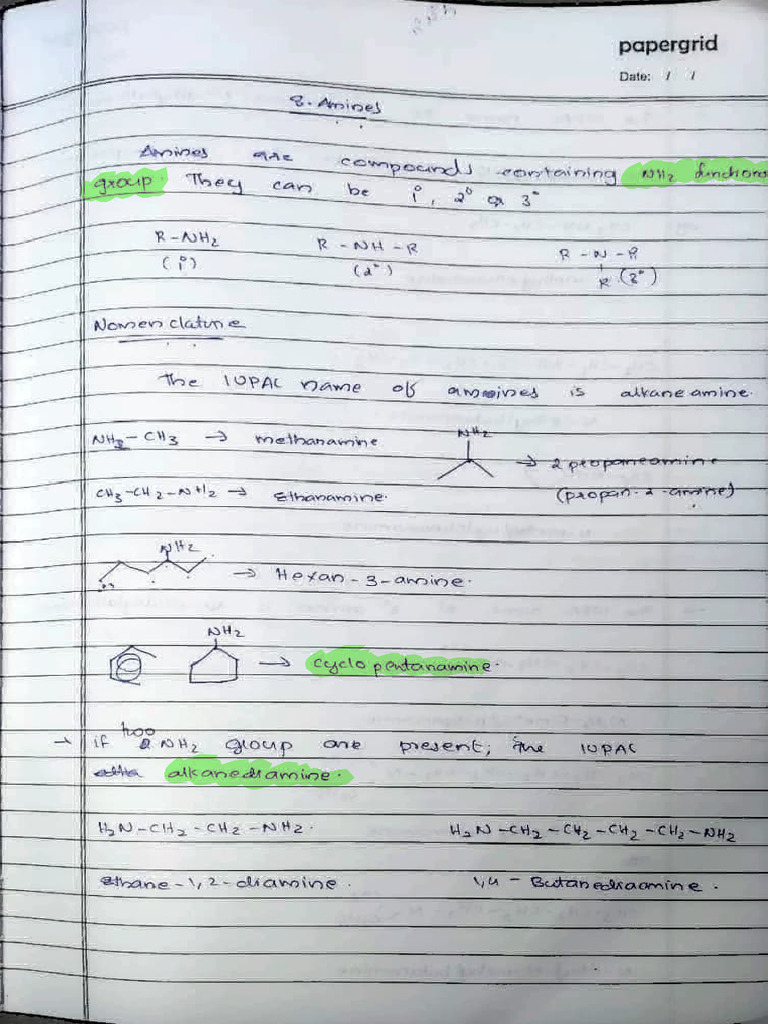 papergrid
Date: / /
8. Amines
Amines are compounds containing NH2 functional
group. They can be 1°, 2° or 3°
R-NH2 R-NH-R R-N-R
(1°) (2°) R (3°)
Nomenclature
The IUPAC name of amines is alkane amine.
NH2-CH3 → methanamine
NH2
→ 2 propaneamine
CH3-CH2-NH2 → Ethanamine.
(propan-2-amine)
NH2
→ Hexan-3-amine.
NH2
→ cyclopentanamine.
→ if two NH2 group are present, the IUPAC
alkanediamine.
H2N-CH2-CH2-NH2. H2N-CH2-CH2-CH2-CH2-NH2
Ethane-1,2-diamine. 1,4-Butanediaamine.